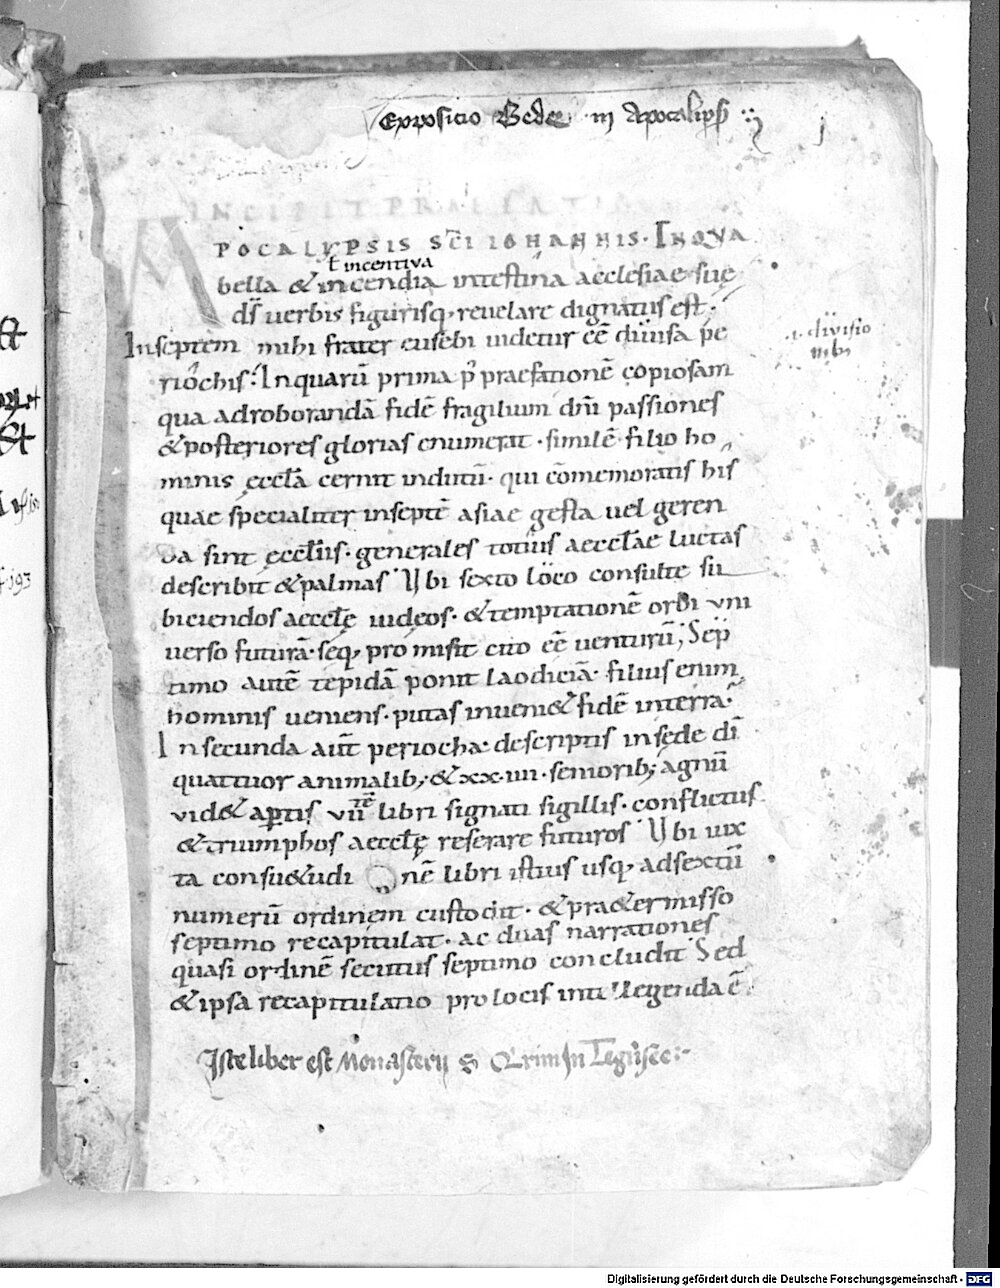 Expositio Bede in Apocalips̄ j
INCIPIT PRAEFATI
APOCALYPSIS SC̄I IOHANNIS· INQVA
ł incentiva
bella & incendia intestina aecclesiae suę
dš uerbis figurisq; reuelare dignatus est·
Inseptem mihi frater eusebi uidetur eē diuisa pe
riochis· Inquarū prima p̄ praefationē copiosam
qua adroborandā fidē fragilium dn̄i passiones
& posteriores glorias enumerat· similē filio ho
minis ęcclā cernit indutū· qui cōmemoratis his
quae specialiter inseptē asiae gesta uel geren
da sint ęcclīis· generales totius aecclae luctas
describit & palmas· Ubi sexto loco consulte su
biciendos aecclę iudeos· & temptationē orbi uni
uerso futurā· seq; promisit cito eē uenturū; Sep
timo autē tepidā ponit laodiciā· filius enim
hominis ueniens· putas inueni& fidē interra·
In secunda aut̄ periocha· descriptis insede dī
quattuor animalib; & xx·iiii· seniorib; agnū
vid& ap̲tis vii tē libri signati sigillis· conflictus
& triumphos aecclę reserare futuros· Ubi iux
ta consu&udinē libri istius usq; adsextū
numerū ordinem custodit· & pra&ermisso
septimo recapitulat· ac duas narrationes
quasi ordinē secutus septimo concludit· Sed
& ipsa recapitulatio pro locis intellegenda ē·
divisio
libri
Iste liber est Monasterii S Qrini In Tegr̄see
Digitalisierung gefördert durch die Deutsche Forschungsgemeinschaft - DFG